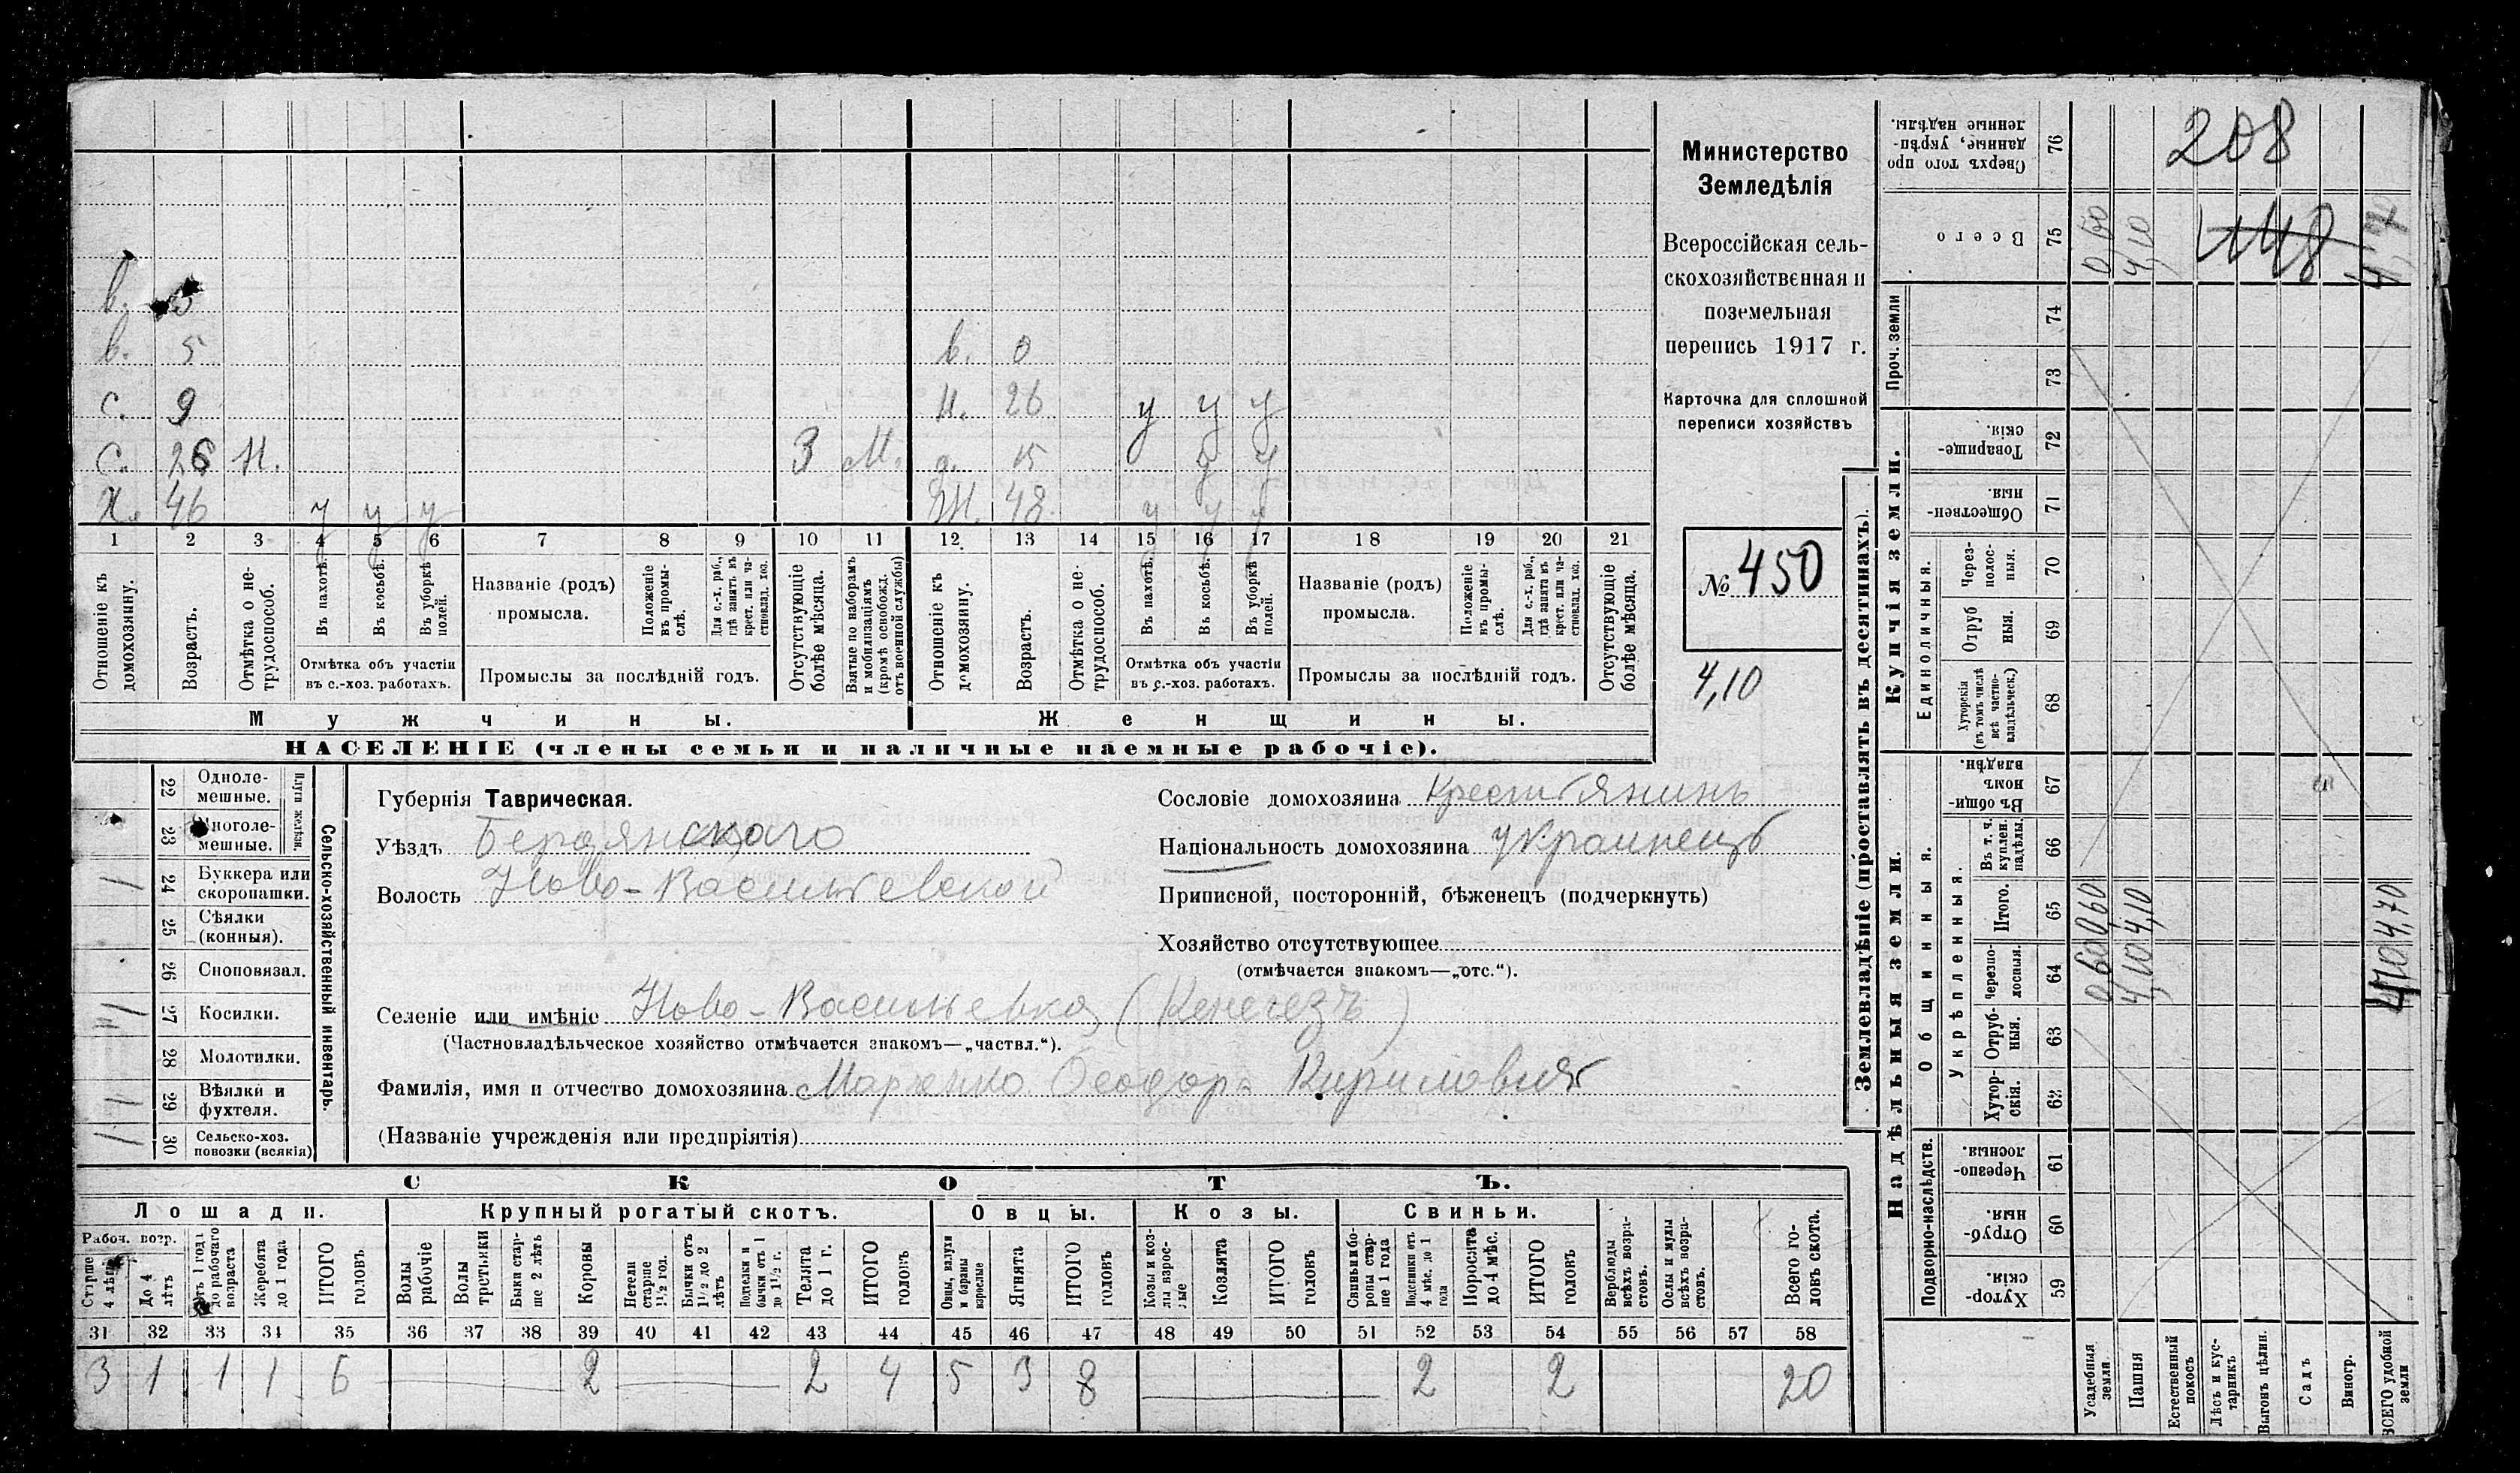 208
148
Министерство
Земледѣлія
Всероссійская сель-
скохозяйственная и
поземельная
перепись 1917 г.
Карточка для сплошной
переписи хозяйствъ
№ 450
4,10
в.
в. 5 в. 0
с. 9 н. 26 у у у
с. 26 Н. 3 М. д. 15 у у
Х. 46 у у у Ж. 48 у у у
1 2 3 4 5 6 7 8 9 10 11 12 13 14 15 16 17 18 19 20 21
Отношеніе къ домохозяину.
Возрастъ.
Отмѣтка о не-трудоспособ.
Въ пахотѣ.
Въ косьбѣ.
Въ уборкѣ полей.
Отмѣтка объ участіи
въ с.-хоз. работахъ.
Названіе (родъ)
промысла.
Положеніе въ промы-слѣ.
Для с.-х. раб., гдѣ занятъ въ крест. или ча-стновлад. хоз.
Промыслы за послѣдній годъ.
Отсутствующіе болѣе мѣсяца.
Взятые по наборамъ и мобилизаціямъ (кромѣ освобожд. отъ военной службы)
Отношеніе къ домохозяину.
Возрастъ.
Отмѣтка о не-трудоспособ.
Въ пахотѣ.
Въ косьбѣ.
Въ уборкѣ полей.
Отмѣтка объ участіи
въ с.-хоз. работахъ.
Названіе (родъ)
промысла.
Положеніе въ промы-слѣ.
Для с.-х. раб., гдѣ занятъ въ крест. или ча-стновлад. хоз.
Промыслы за послѣдній годъ.
Отсутствующіе болѣе мѣсяца.
Мужчины. Женщины.
НАСЕЛЕНІЕ (члены семьи и наличные наемные рабочіе).
Сельско-хозяйственный инвентарь.
Плуги желѣзн.
22 Одноле-мешные.
23 Многоле-мешные.
24 Буккера или скоропашки. 1
25 Сѣялки (конныя).
26 Сноповязал.
27 Косилки.
28 Молотилки.
29 Вѣялки и фухтеля. 1
30 Сельско-хоз. повозки (всякія) 1
Губернія Таврическая.
Уѣздъ Бердянскаго
Волость Ново-Васильевской
Сословіе домохозяина Крестьянинъ
Національность домохозяина украинецъ
Приписной, посторонній, бѣженецъ (подчеркнуть)
Хозяйство отсутствующее
(отмѣчается знакомъ—„отс.“).
Селеніе или имѣніе Ново-Васильевка (Кенегезъ)
(Частновладѣльческое хозяйство отмѣчается знакомъ—„частвл.“).
Фамилія, имя и отчество домохозяина Марченко Ѳеодоръ Кириловичъ
(Названіе учрежденія или предпріятія)
СКОТЪ.
Лошади. Крупный рогатый скотъ. Овцы. Козы. Свиньи.
Рабоч. возр.
Старше 4 лѣтъ
До 4 лѣтъ
Отъ 1 года до рабочаго возраста
Жеребята до 1 года
ИТОГО головъ
Волы рабочіе
Волы третьяки
Быки стар-ше 2 лѣтъ
Коровы
Нетели старше 1½ год.
Бычки отъ 1½ до 2 лѣтъ
Подтелки и бычки отъ 1 до 1½ г.
Телята до 1 г.
ИТОГО головъ
Овцы, валухи и бараны взрослые
Ягнята
ИТОГО головъ
Козы и коз-лы взрос-лые
Козлята
ИТОГО головъ
Свиньи и бо-ровы стар-ше 1 года
Подсвинки отъ 4 мѣс. до 1 года
Поросята до 4 мѣс.
ИТОГО головъ
Верблюды всѣхъ возра-стовъ.
Ослы и мулы всѣхъ возра-стовъ.
Всего го-ловъ скота.
31 32 33 34 35 36 37 38 39 40 41 42 43 44 45 46 47 48 49 50 51 52 53 54 55 56 57 58
3 1 1 1 6 2 2 4 5 3 8 2 2 20
Землевладѣніе (проставлять въ десятинахъ).
Надѣльныя земли. Купчія земли.
Проч. земли
Подворно-наслѣдств.
Общинныя.
Укрѣпленныя.
Единоличныя.
Сверхъ того про-даннные, укрѣп-ленные надѣлы. 76
Всего 75 0,60 4,10 4,70
74
73
Товарище-скія. 72
Обществен-ныя. 71
Через-полос-ныя. 70
Отруб-ныя. 69
Хуторскія (въ томъ числѣ всѣ частно-владѣльческ.) 68
Въ общин-номъ владѣн. 67
Въ т. ч. куплен. надѣлы. 66
Итого. 65 0,60 4,10 4,70
Черезпо-лосныя 64 0,60 4,10 4,70
Отруб-ныя. 63
Хутор-скія. 62
Черезпо-лосныя. 61
Отруб-ныя. 60
Хутор-скія. 59
Усадебныя земля
Пашня
Естественный покосъ
Лѣсъ и кус-тарникъ
Выгонъ цѣлин.
Садъ
Виногр.
ВСЕГО удобной земли